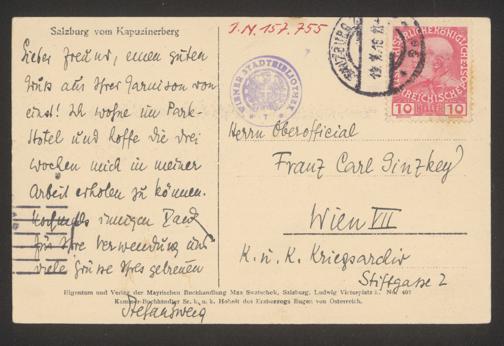 Salzburg vom Kapuzinerberg
J.N. 157.755
Lieber Freund, einen guten
Gruß aus Ihrer Garnison von
einst! Ich wohne im Park-
Hotel und hoffe die drei
Wochen mich in meiner
Arbeit erholen zu können.
Nochmals innigen Dank
für Ihre Verwendung und
viele Grüße Ihres getreuen
Stefan Zweig
WIENER STADTBIBLIOTHEK
SALZBURG
10 HELLER 10
Herrn Oberofficial
Franz Carl Ginzkey
Wien VII
K. u. K. Kriegsarchiv
Stiftgasse 2
Eigentum und Verlag der Mayrischen Buchhandlung Max Swatschek, Salzburg, Ludwig Victorplatz Nr. 405
Kammer-Buchhändler Sr. k. u. k. Hoheit des Erzherzogs Eugen von Österreich.